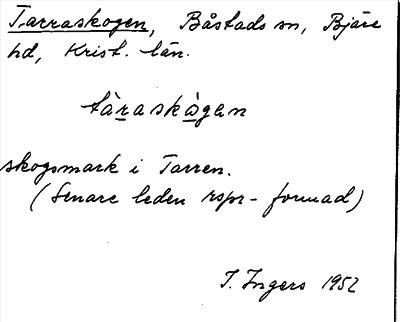 Tarraskogen, Båstads sn, Bjäre
hd, Krist. län.
tàraskògen
skogsmark i Tarren.
(Senare leden rspr-formad)
I. Ingers 1952